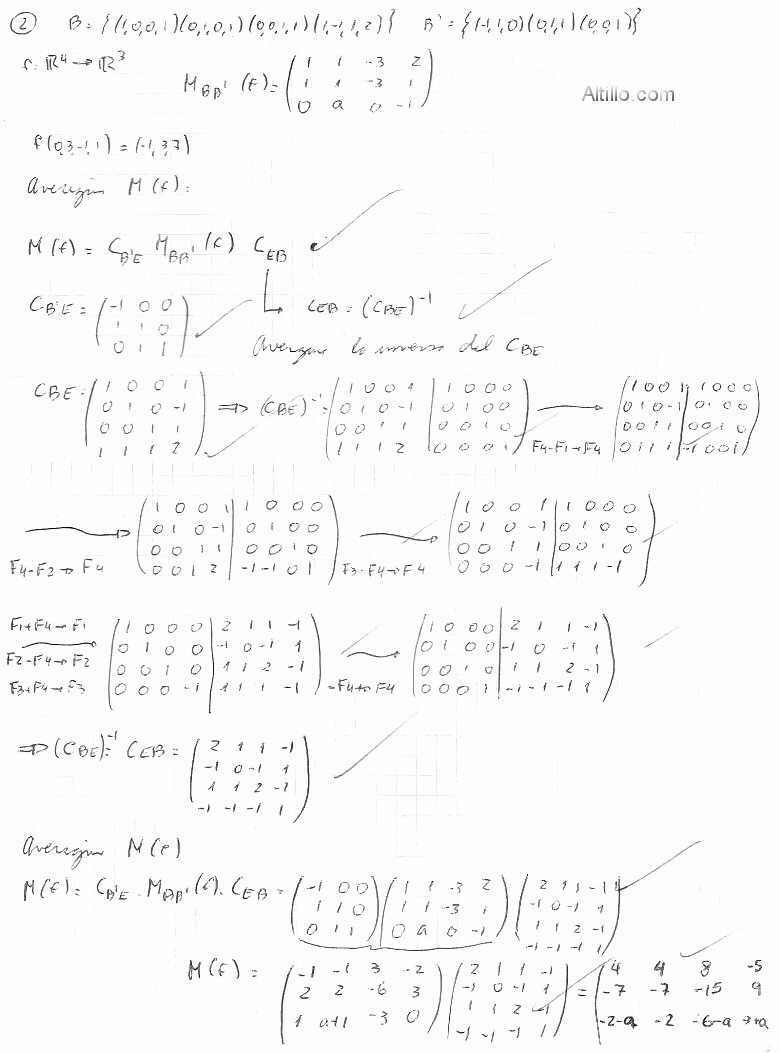 ② B = {(1,0,0,1)(0,1,0,1)(0,0,1,1)(1,-1,1,2)} B' = {(-1,1,0)(0,1,1)(0,0,1)}
f: ℝ⁴ → ℝ³
M_BB' (f) = ( 1 1 -3 2
1 1 -3 1
0 a 0 -1 )
Altillo.com
f(0,3,-1,1) = (-1,3,7)
M(f) =
M(f) = C_B'E M_BB'(f) C_EB
C_B'E = ( -1 0 0
1 1 0
0 1 1 )
C_EB = (C_BE)⁻¹
inversa del C_BE
C_BE = ( 1 0 0 1
0 1 0 -1
0 0 1 1
1 1 1 2 )
⇒ (C_BE)⁻¹ = ( 1 0 0 1 | 1 0 0 0
0 1 0 -1 | 0 1 0 0
0 0 1 1 | 0 0 1 0
1 1 1 2 | 0 0 0 1 )
F4-F1→F4
( 1 0 0 1 | 1 0 0 0
0 1 0 -1 | 0 1 0 0
0 0 1 1 | 0 0 1 0
0 1 1 1 | -1 0 0 1 )
F4-F2→F4
( 1 0 0 1 | 1 0 0 0
0 1 0 -1 | 0 1 0 0
0 0 1 1 | 0 0 1 0
0 0 1 2 | -1 -1 0 1 )
F3-F4→F4
( 1 0 0 1 | 1 0 0 0
0 1 0 -1 | 0 1 0 0
0 0 1 1 | 0 0 1 0
0 0 0 -1 | 1 1 1 -1 )
F1+F4→F1
F2-F4→F2
F3+F4→F3
( 1 0 0 0 | 2 1 1 -1
0 1 0 0 | -1 0 -1 1
0 0 1 0 | 1 1 2 -1
0 0 0 -1 | 1 1 1 -1 )
-F4→F4
( 1 0 0 0 | 2 1 1 -1
0 1 0 0 | -1 0 -1 1
0 0 1 0 | 1 1 2 -1
0 0 0 1 | -1 -1 -1 1 )
⇒ (C_BE)⁻¹ = C_EB = ( 2 1 1 -1
-1 0 -1 1
1 1 2 -1
-1 -1 -1 1 )
M(f)
M(f) = C_B'E . M_BB'(f) . C_EB = ( -1 0 0
1 1 0
0 1 1 )
( 1 1 -3 2
1 1 -3 1
0 a 0 -1 )
( 2 1 1 -1
-1 0 -1 1
1 1 2 -1
-1 -1 -1 1 )
M(f) = ( -1 -1 3 -2
2 2 -6 3
1 a+1 -3 0 )
( 2 1 1 -1
-1 0 -1 1
1 1 2 -1
-1 -1 -1 1 )
= ( 4 4 8 -5
-7 -7 -15 9
-2-a -2 -6-a 3+a